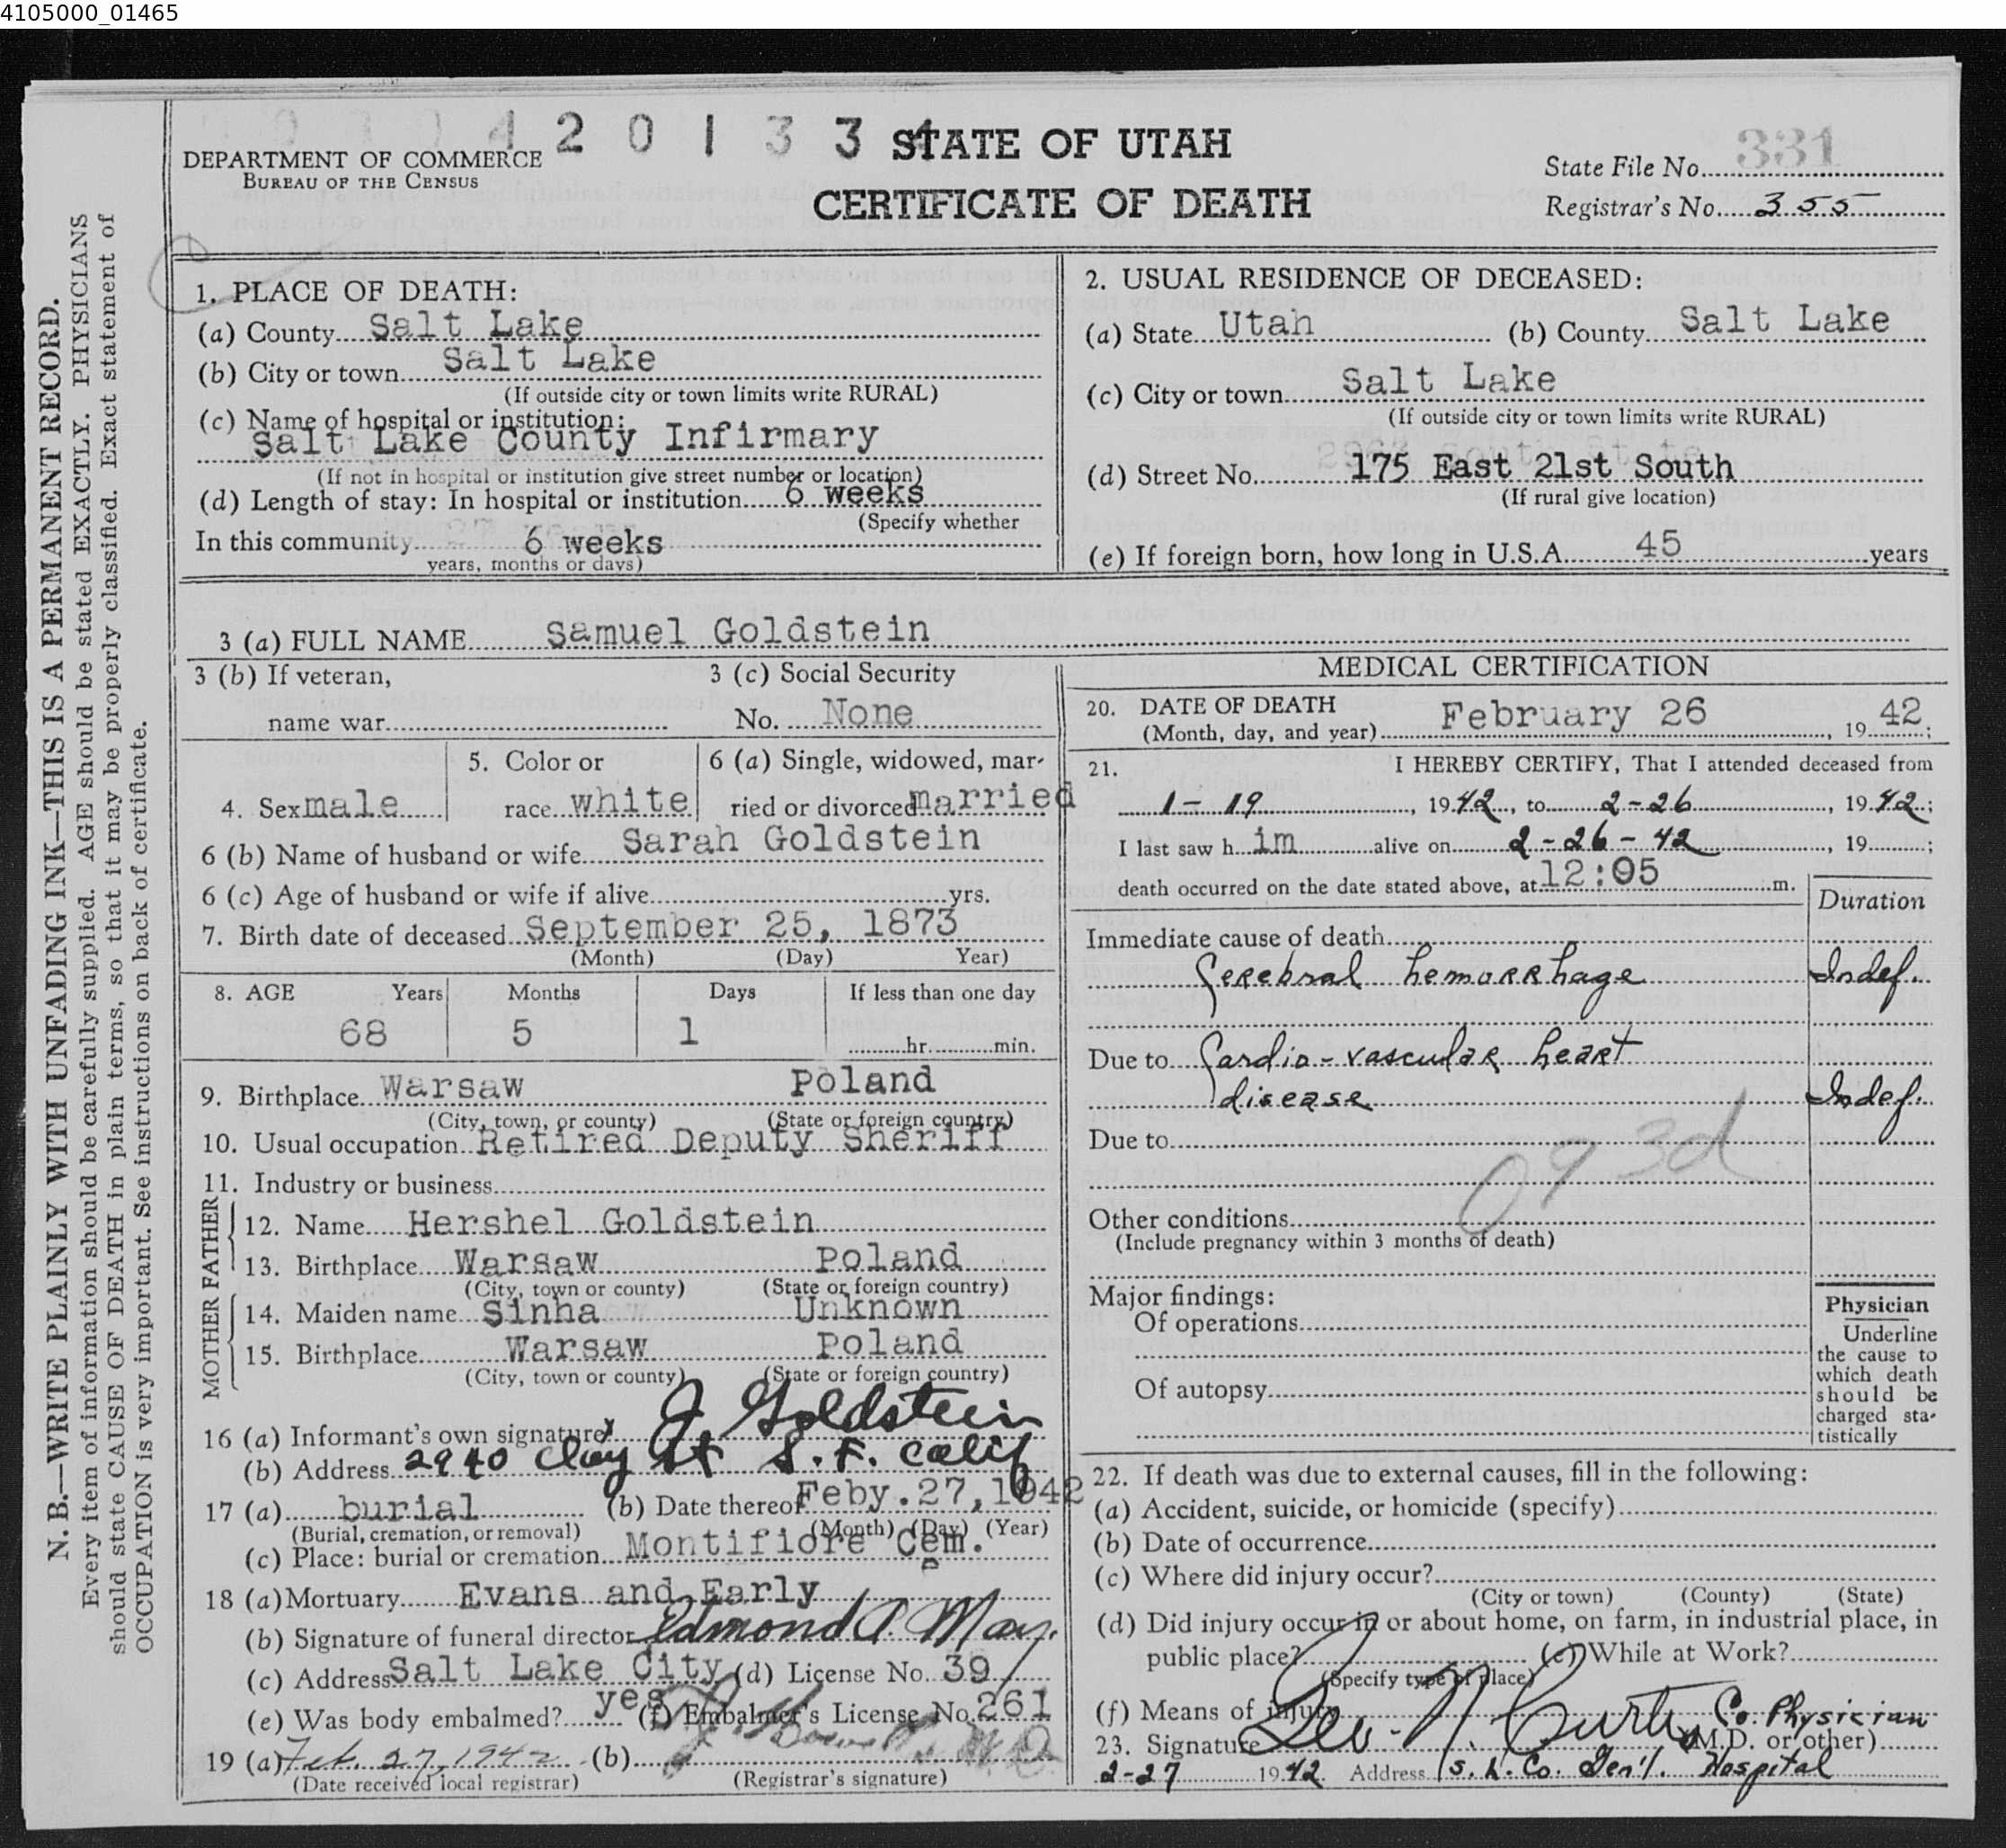 4105000_01465
4 2 0 1 3 3
DEPARTMENT OF COMMERCE
BUREAU OF THE CENSUS
STATE OF UTAH
CERTIFICATE OF DEATH
State File No. 331
Registrar's No. 355
N. B.—WRITE PLAINLY WITH UNFADING INK—THIS IS A PERMANENT RECORD.
Every item of information should be carefully supplied. AGE should be stated EXACTLY. PHYSICIANS
should state CAUSE OF DEATH in plain terms, so that it may be properly classified. Exact statement of
OCCUPATION is very important. See instructions on back of certificate.
1. PLACE OF DEATH:
(a) County Salt Lake
(b) City or town Salt Lake
(If outside city or town limits write RURAL)
(c) Name of hospital or institution:
Salt Lake County Infirmary
(If not in hospital or institution give street number or location)
(d) Length of stay: In hospital or institution 6 weeks
(Specify whether
In this community 6 weeks
years, months or days)
2. USUAL RESIDENCE OF DECEASED:
(a) State Utah (b) County Salt Lake
(c) City or town Salt Lake
(If outside city or town limits write RURAL)
(d) Street No. 175 East 21st South
(If rural give location)
(e) If foreign born, how long in U.S.A. 45 years
3 (a) FULL NAME Samuel Goldstein
3 (b) If veteran, 3 (c) Social Security
name war No. None
4. Sex male 5. Color or race white 6 (a) Single, widowed, married or divorced married
6 (b) Name of husband or wife Sarah Goldstein
6 (c) Age of husband or wife if alive yrs.
7. Birth date of deceased September 25, 1873
(Month) (Day) Year)
8. AGE Years Months Days If less than one day
68 5 1 hr. min.
9. Birthplace Warsaw Poland
(City, town, or county) (State or foreign country)
10. Usual occupation Retired Deputy Sheriff
11. Industry or business
FATHER
12. Name Hershel Goldstein
13. Birthplace Warsaw Poland
(City, town or county) (State or foreign country)
MOTHER
14. Maiden name Sinha Unknown
15. Birthplace Warsaw Poland
(City, town or county) (State or foreign country)
16 (a) Informant's own signature x J Goldstein
(b) Address 2940 Clay St S.F. Calif
17 (a) burial (b) Date thereof Feby. 27, 1942
(Burial, cremation, or removal) (Month) (Day) (Year)
(c) Place: burial or cremation Montifiore Cem.
18 (a) Mortuary Evans and Early
(b) Signature of funeral director Edmond A. May.
(c) Address Salt Lake City (d) License No. 39
(e) Was body embalmed? yes (f) Embalmer's License No. 261
19 (a) Feb. 27, 1942 (b)
(Date received local registrar) (Registrar's signature)
MEDICAL CERTIFICATION
20. DATE OF DEATH
(Month, day, and year) February 26, 1942;
21. I HEREBY CERTIFY, That I attended deceased from
1-19, 1942, to 2-26, 1942;
I last saw him alive on 2-26-42, 19 ;
death occurred on the date stated above, at 12:05 m.
Duration
Immediate cause of death
Cerebral hemorrhage Indef.
Due to Cardio-vascular heart
disease Indef.
Due to
093d
Other conditions
(Include pregnancy within 3 months of death)
Major findings:
Of operations
Of autopsy
Physician
Underline
the cause to
which death
should be
charged sta-
tistically
22. If death was due to external causes, fill in the following:
(a) Accident, suicide, or homicide (specify)
(b) Date of occurrence
(c) Where did injury occur?
(City or town) (County) (State)
(d) Did injury occur in or about home, on farm, in industrial place, in
public place? (e) While at Work?
(Specify type of place)
(f) Means of injury
23. Signature Leo N Curtis Co. Physician
(M.D. or other)
2-27 1942 Address S. L. Co. Gen'l. Hospital